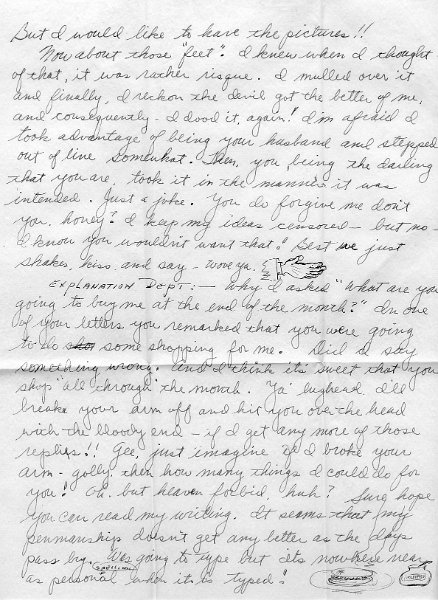 But I would like to have the pictures!!
Now about those "feet". I knew when I thought
of that, it was rather risque. I mulled over it
and finally, I reckon the devil got the better of me,
and consequently - I dood it, again! I'm afraid I
took advantage of being your husband and stepped
out of line somewhat. Then, you being the darling
that you are, took it in the manner it was
intended. Just a joke. You do forgive me don't
you, honey? I keep my ideas censored - but no -
I know you wouldn't want that! Best we just
shakes, kiss, and say - wove ya.
EXPLANATION DEPT: - Why I asked "What are you
going to buy me at the end of the month?" In one
of your letters you remarked that you were going
to do some shopping for me. Did I say
something wrong. And I think it's sweet that you
shop "all through" the month. Ya' lughead I'll
break your arm off and hit you over the head
with the bloody end - if I get any more of those
replies!! Gee, just imagine if I broke your
arm - golly, then how many things I could do for
you! Oh, but heaven forbid, huh? Sure hope
you can read my writing. It seams that my
penmanships doesn't get any better as the days
pass by. Was going to type but its nowhere near
as personal when it is typed!